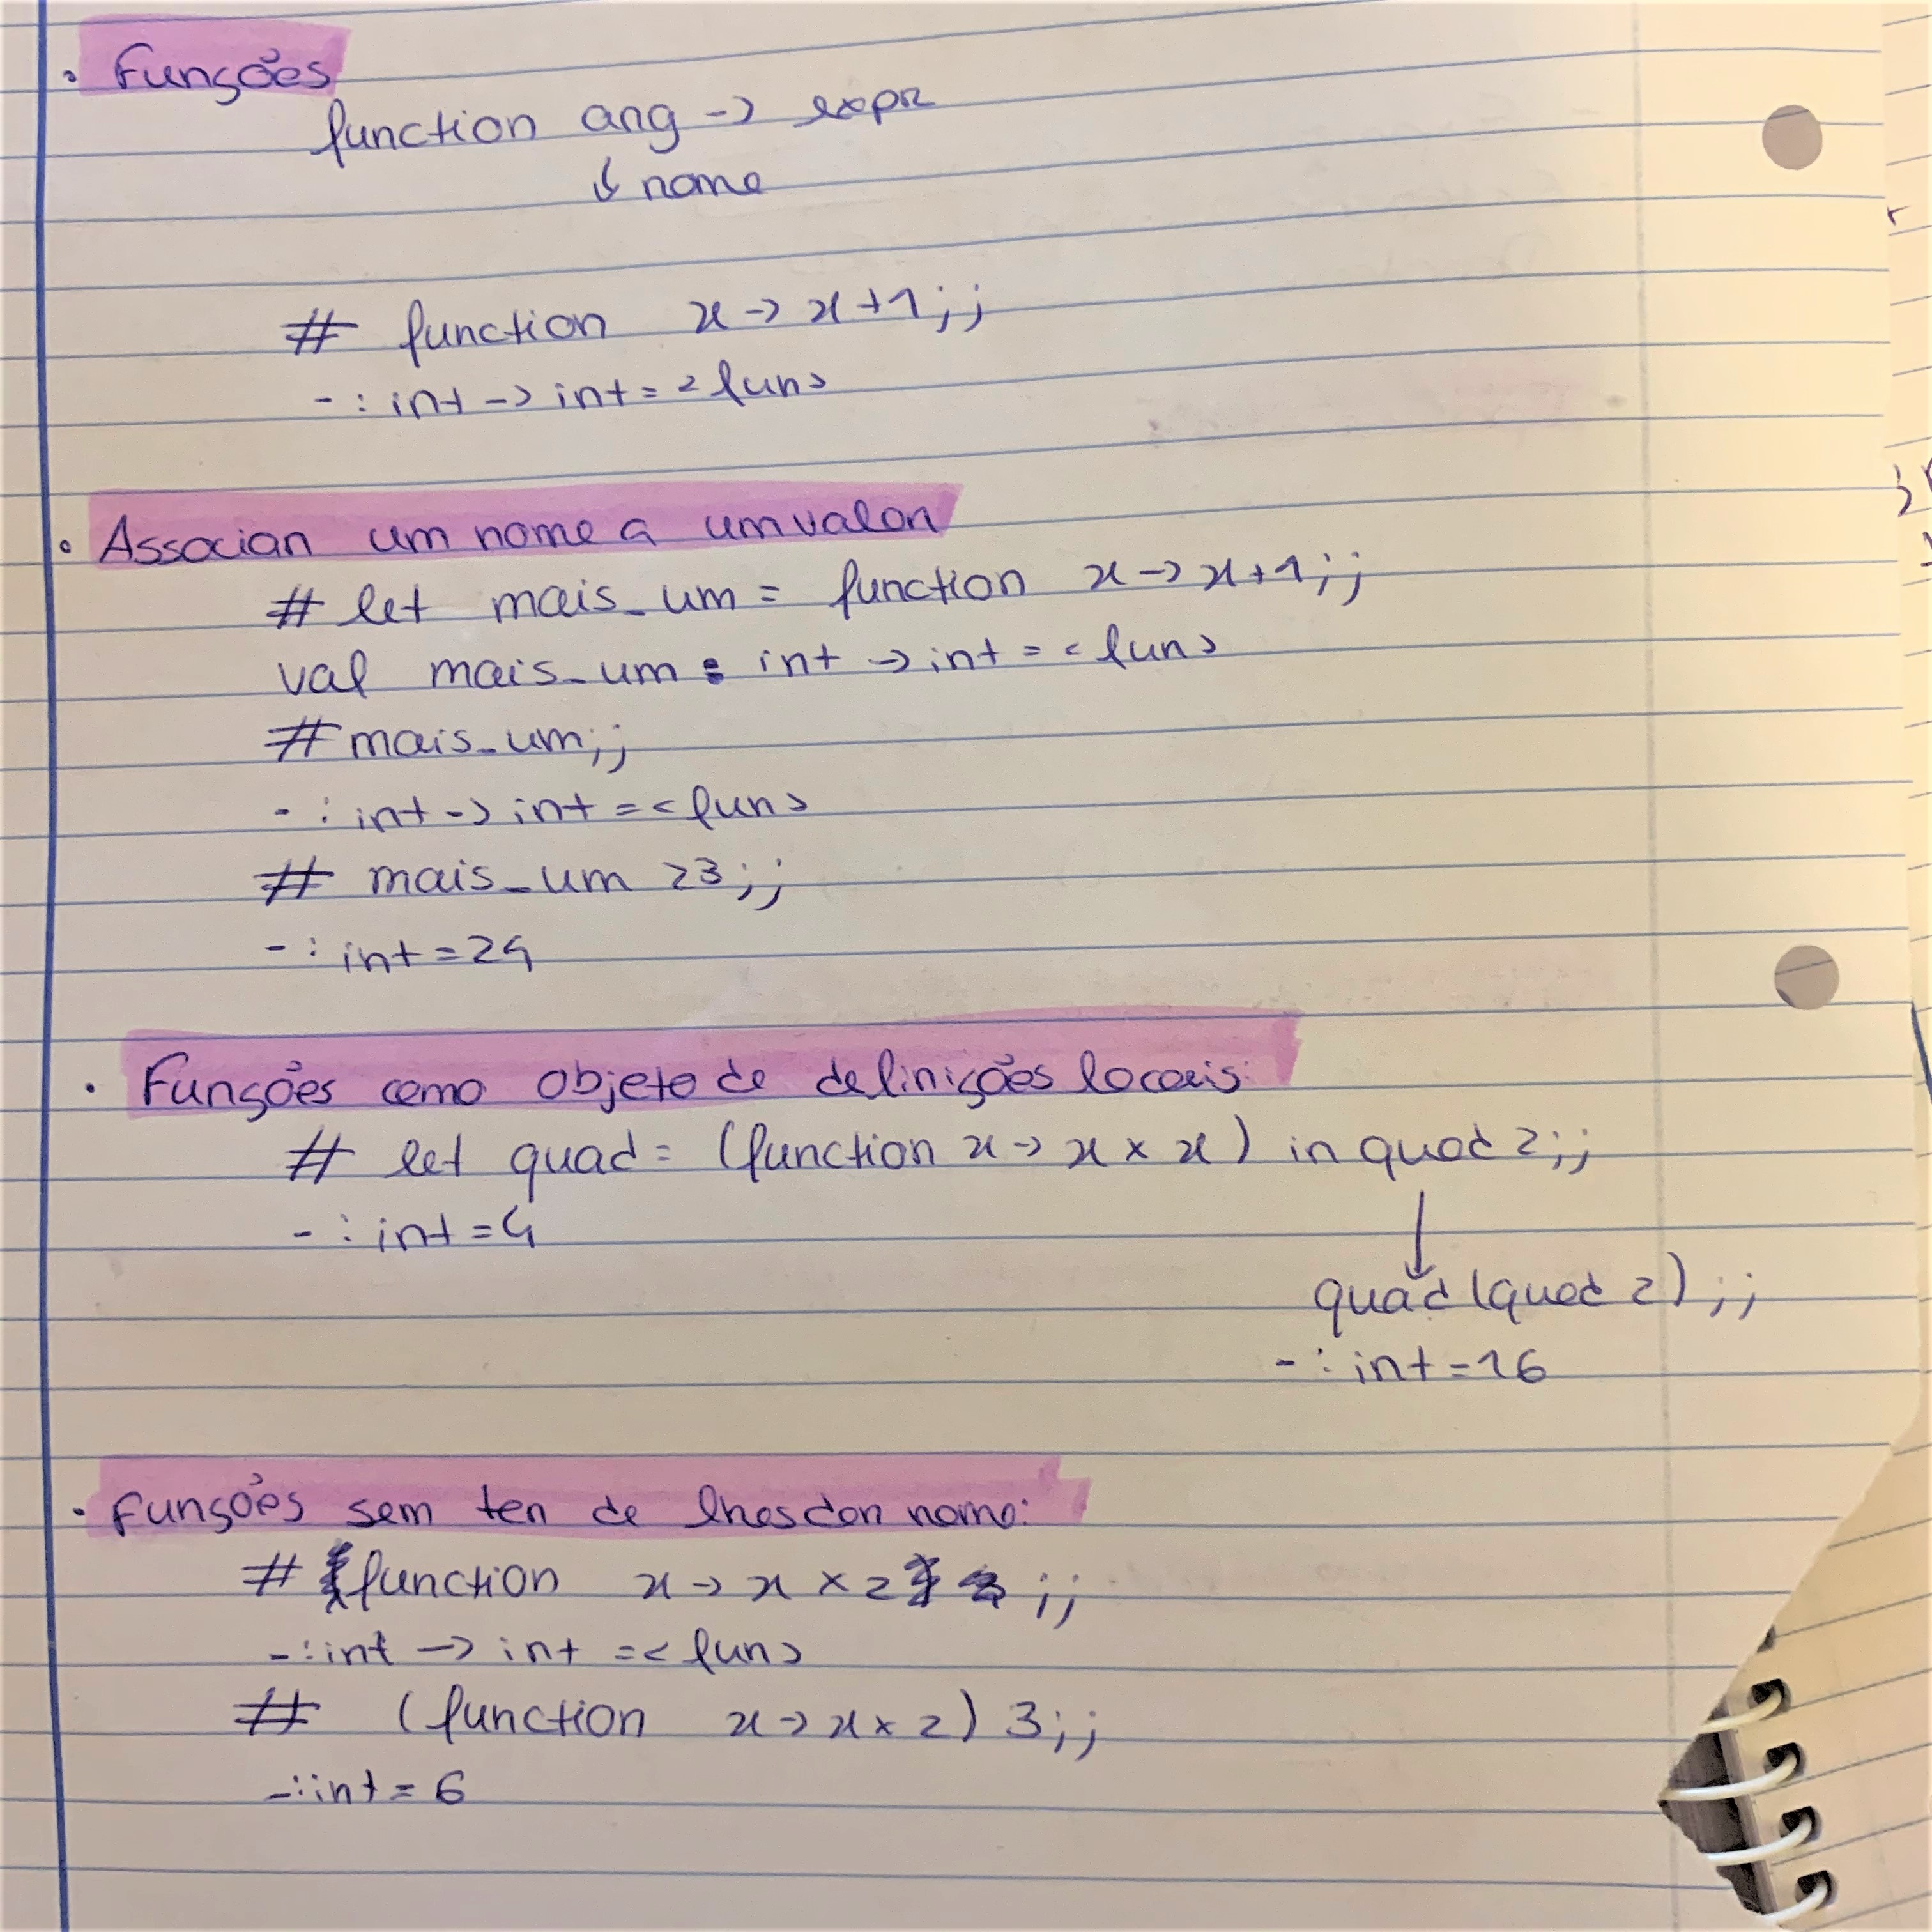 • Funções
function arg -> expr
↓ nome
# function x -> x+1;;
- : int -> int = <fun>
• Associar um nome a um valor
# let mais_um = function x -> x+1;;
val mais_um : int -> int = <fun>
# mais_um;;
- : int -> int = <fun>
# mais_um 23;;
- : int = 24
• Funções como objeto de definições locais:
# let quad = (function x -> x × x) in quad 2;;
- : int = 4
quad (quad 2) ;;
- : int = 16
• Funções sem ter de lhes dar nome:
# function x -> x × 2 ;;
- : int -> int = <fun>
# (function x -> x × 2) 3;;
- : int = 6